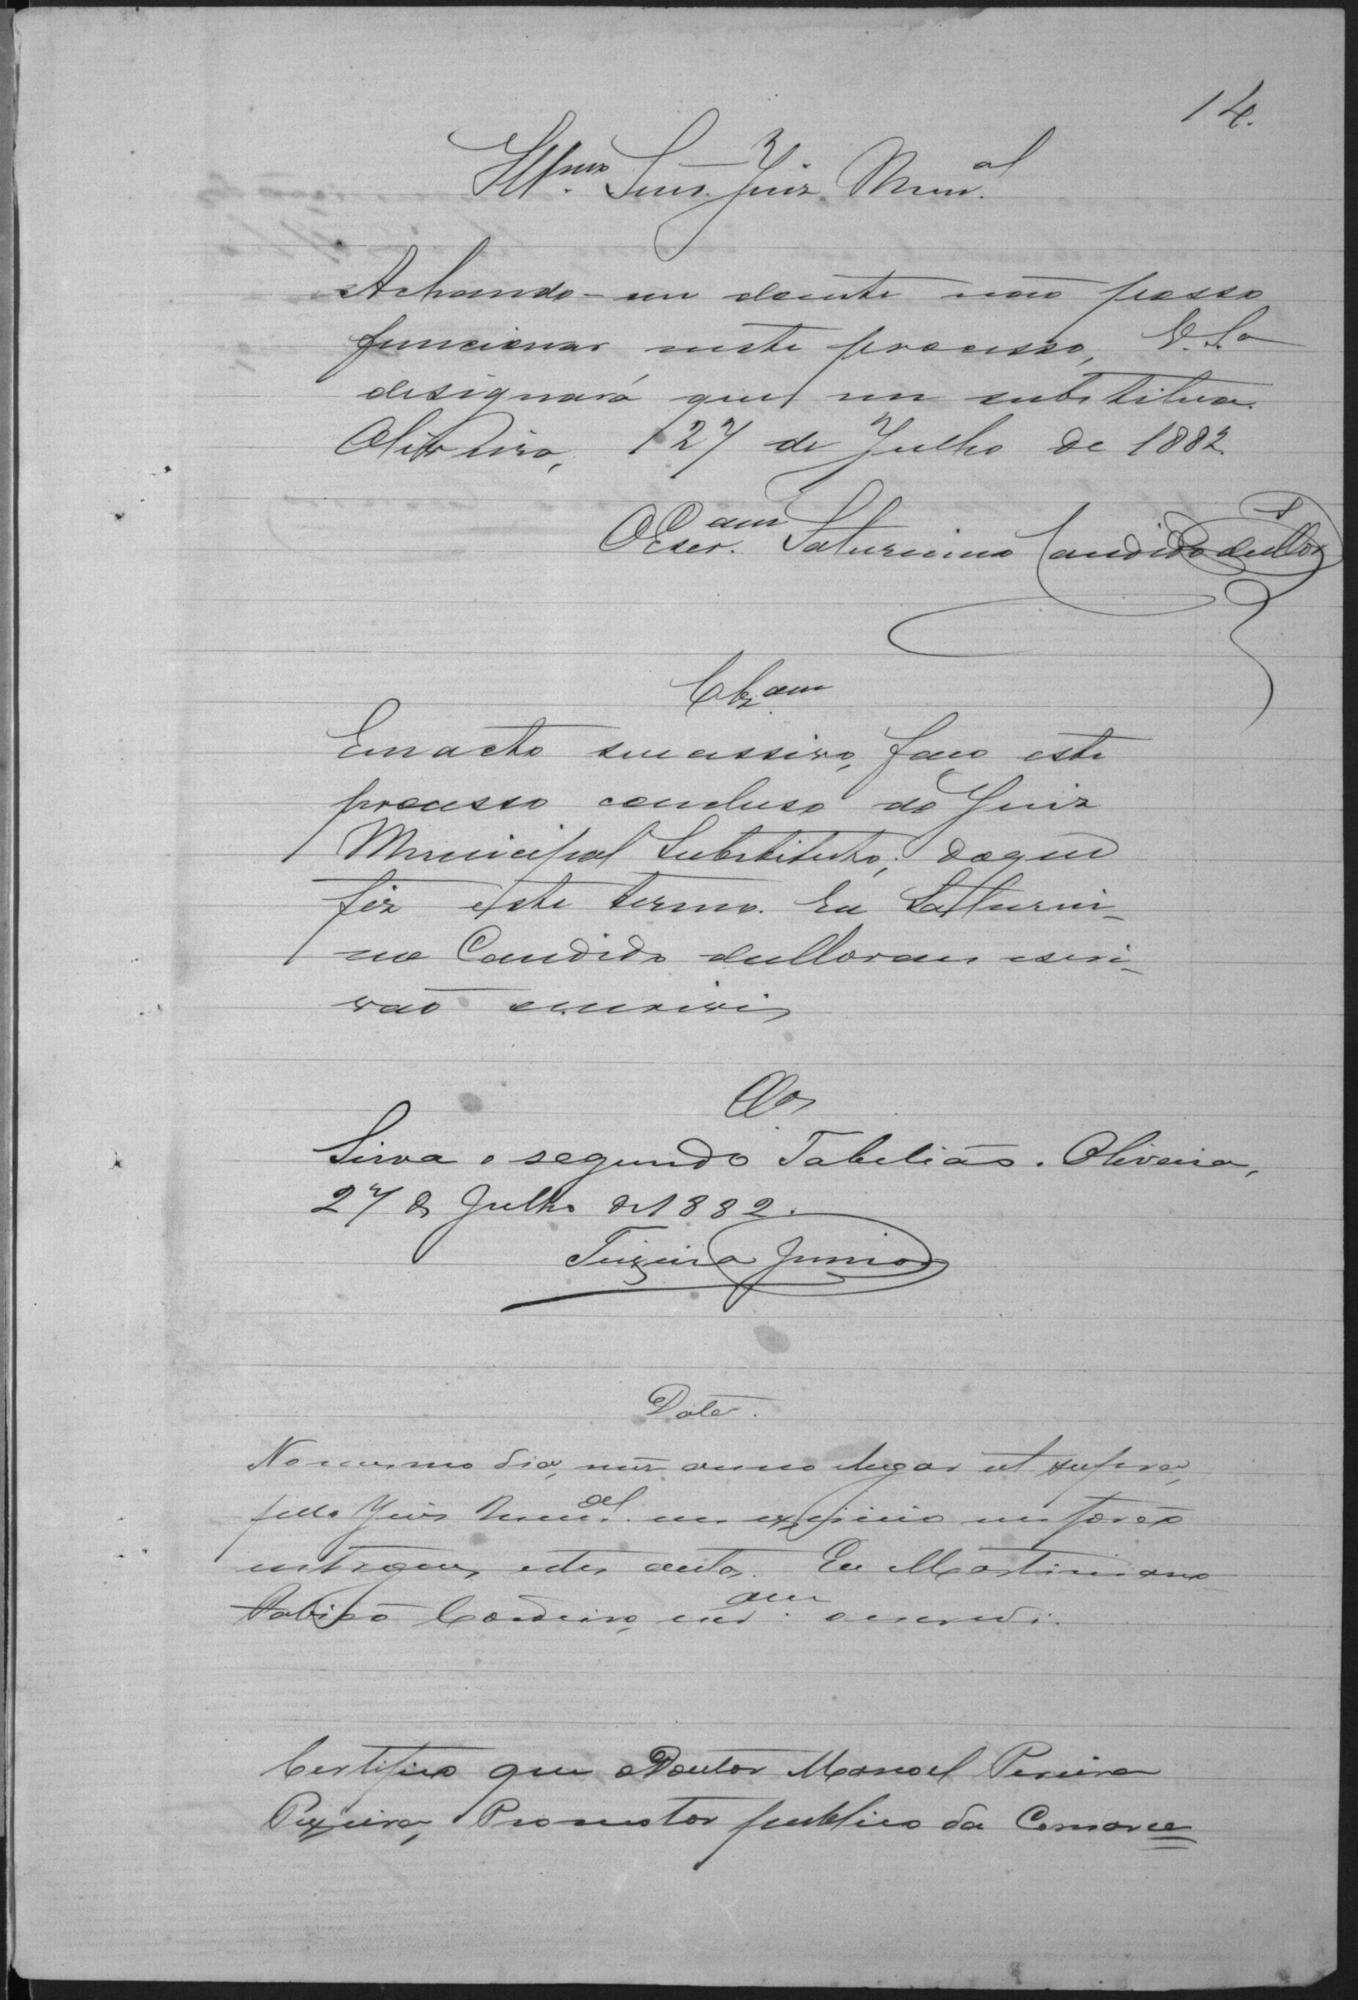 14.
Illmo Snr. Juiz Munal.
Achando-me doente não posso
funcionar neste processo, V. Sa
designará quem me substitua.
Oliveira, 27 de Julho de 1882.
O Escram Saturnino Candido
Clzam
Em acto sucessivo, faço este
processo concluso ao Juiz
Municipal Substituto; do que
fiz este termo. Eu Saturni-
no Candido escri-
vão escrivi
Clos
Sirva o segundo Tabelião. Oliveira,
27 de Julho de 1882.
Teixeira Junior
Data.
No mesmo dia, mez anno e lugar ut supra,
pello Juiz Munal. em exercicio me forão
entregues estes autos. Eu Martiniano
Cordeiro, escram o escrevi.
Certifico que o Doutor Manoel Pereira
Promotor publico da Comarca